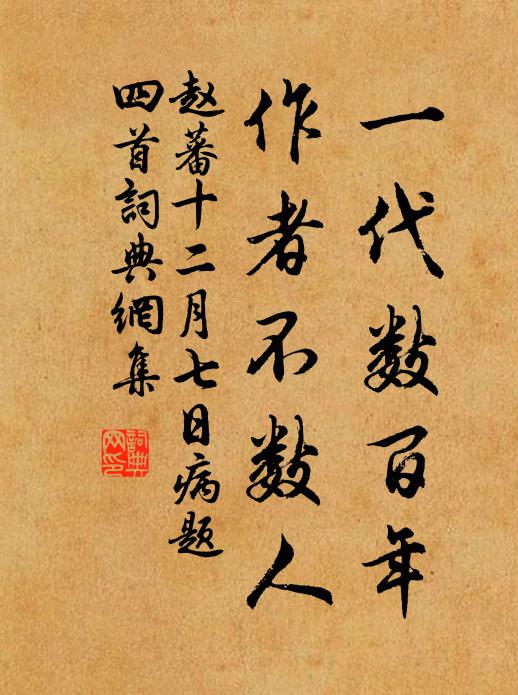 一代数百年
作者不数人
赵蕃十二月七日病题
四首詞典網集
詞典